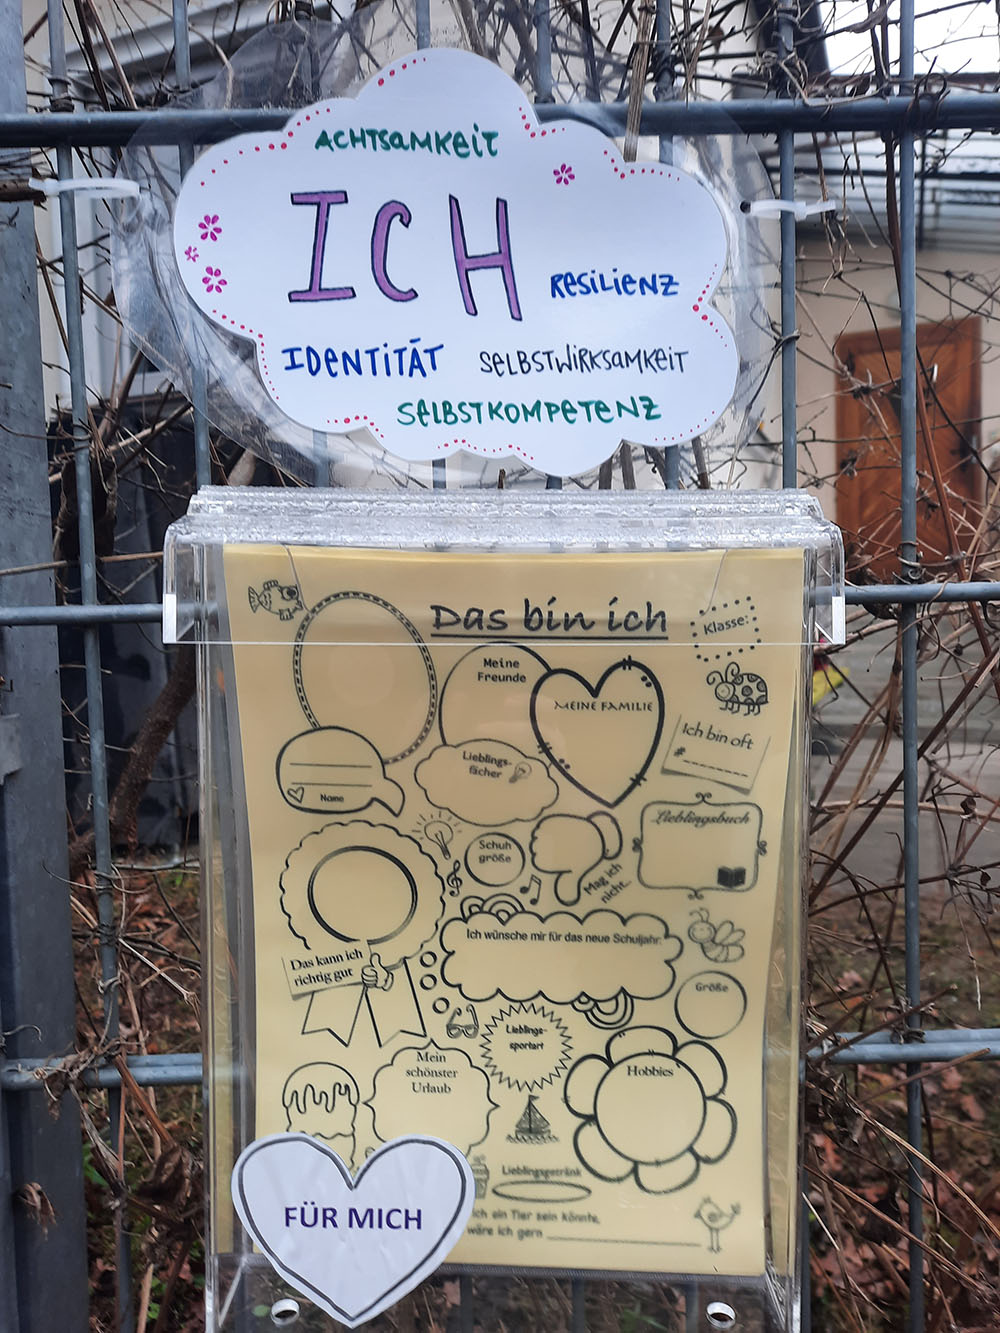 ACHTSAMKEIT
ICH
RESILIENZ
IDENTITÄT
SELBSTWIRKSAMKEIT
SELBSTKOMPETENZ
Das bin ich
Klasse:
Meine
Freunde
MEINE FAMILIE
Ich bin oft
#
Lieblings-
fächer
Name
Lieblingsbuch
Schuh
größe
Mag ich
nicht.
Ich wünsche mir für das neue Schuljahr:
Das kann ich
richtig gut
Größe
Lieblings-
sportart
Mein
schönster
Urlaub
Hobbies
Lieblingsgetränk
ich ein Tier sein könnte,
wäre ich gern
FÜR MICH